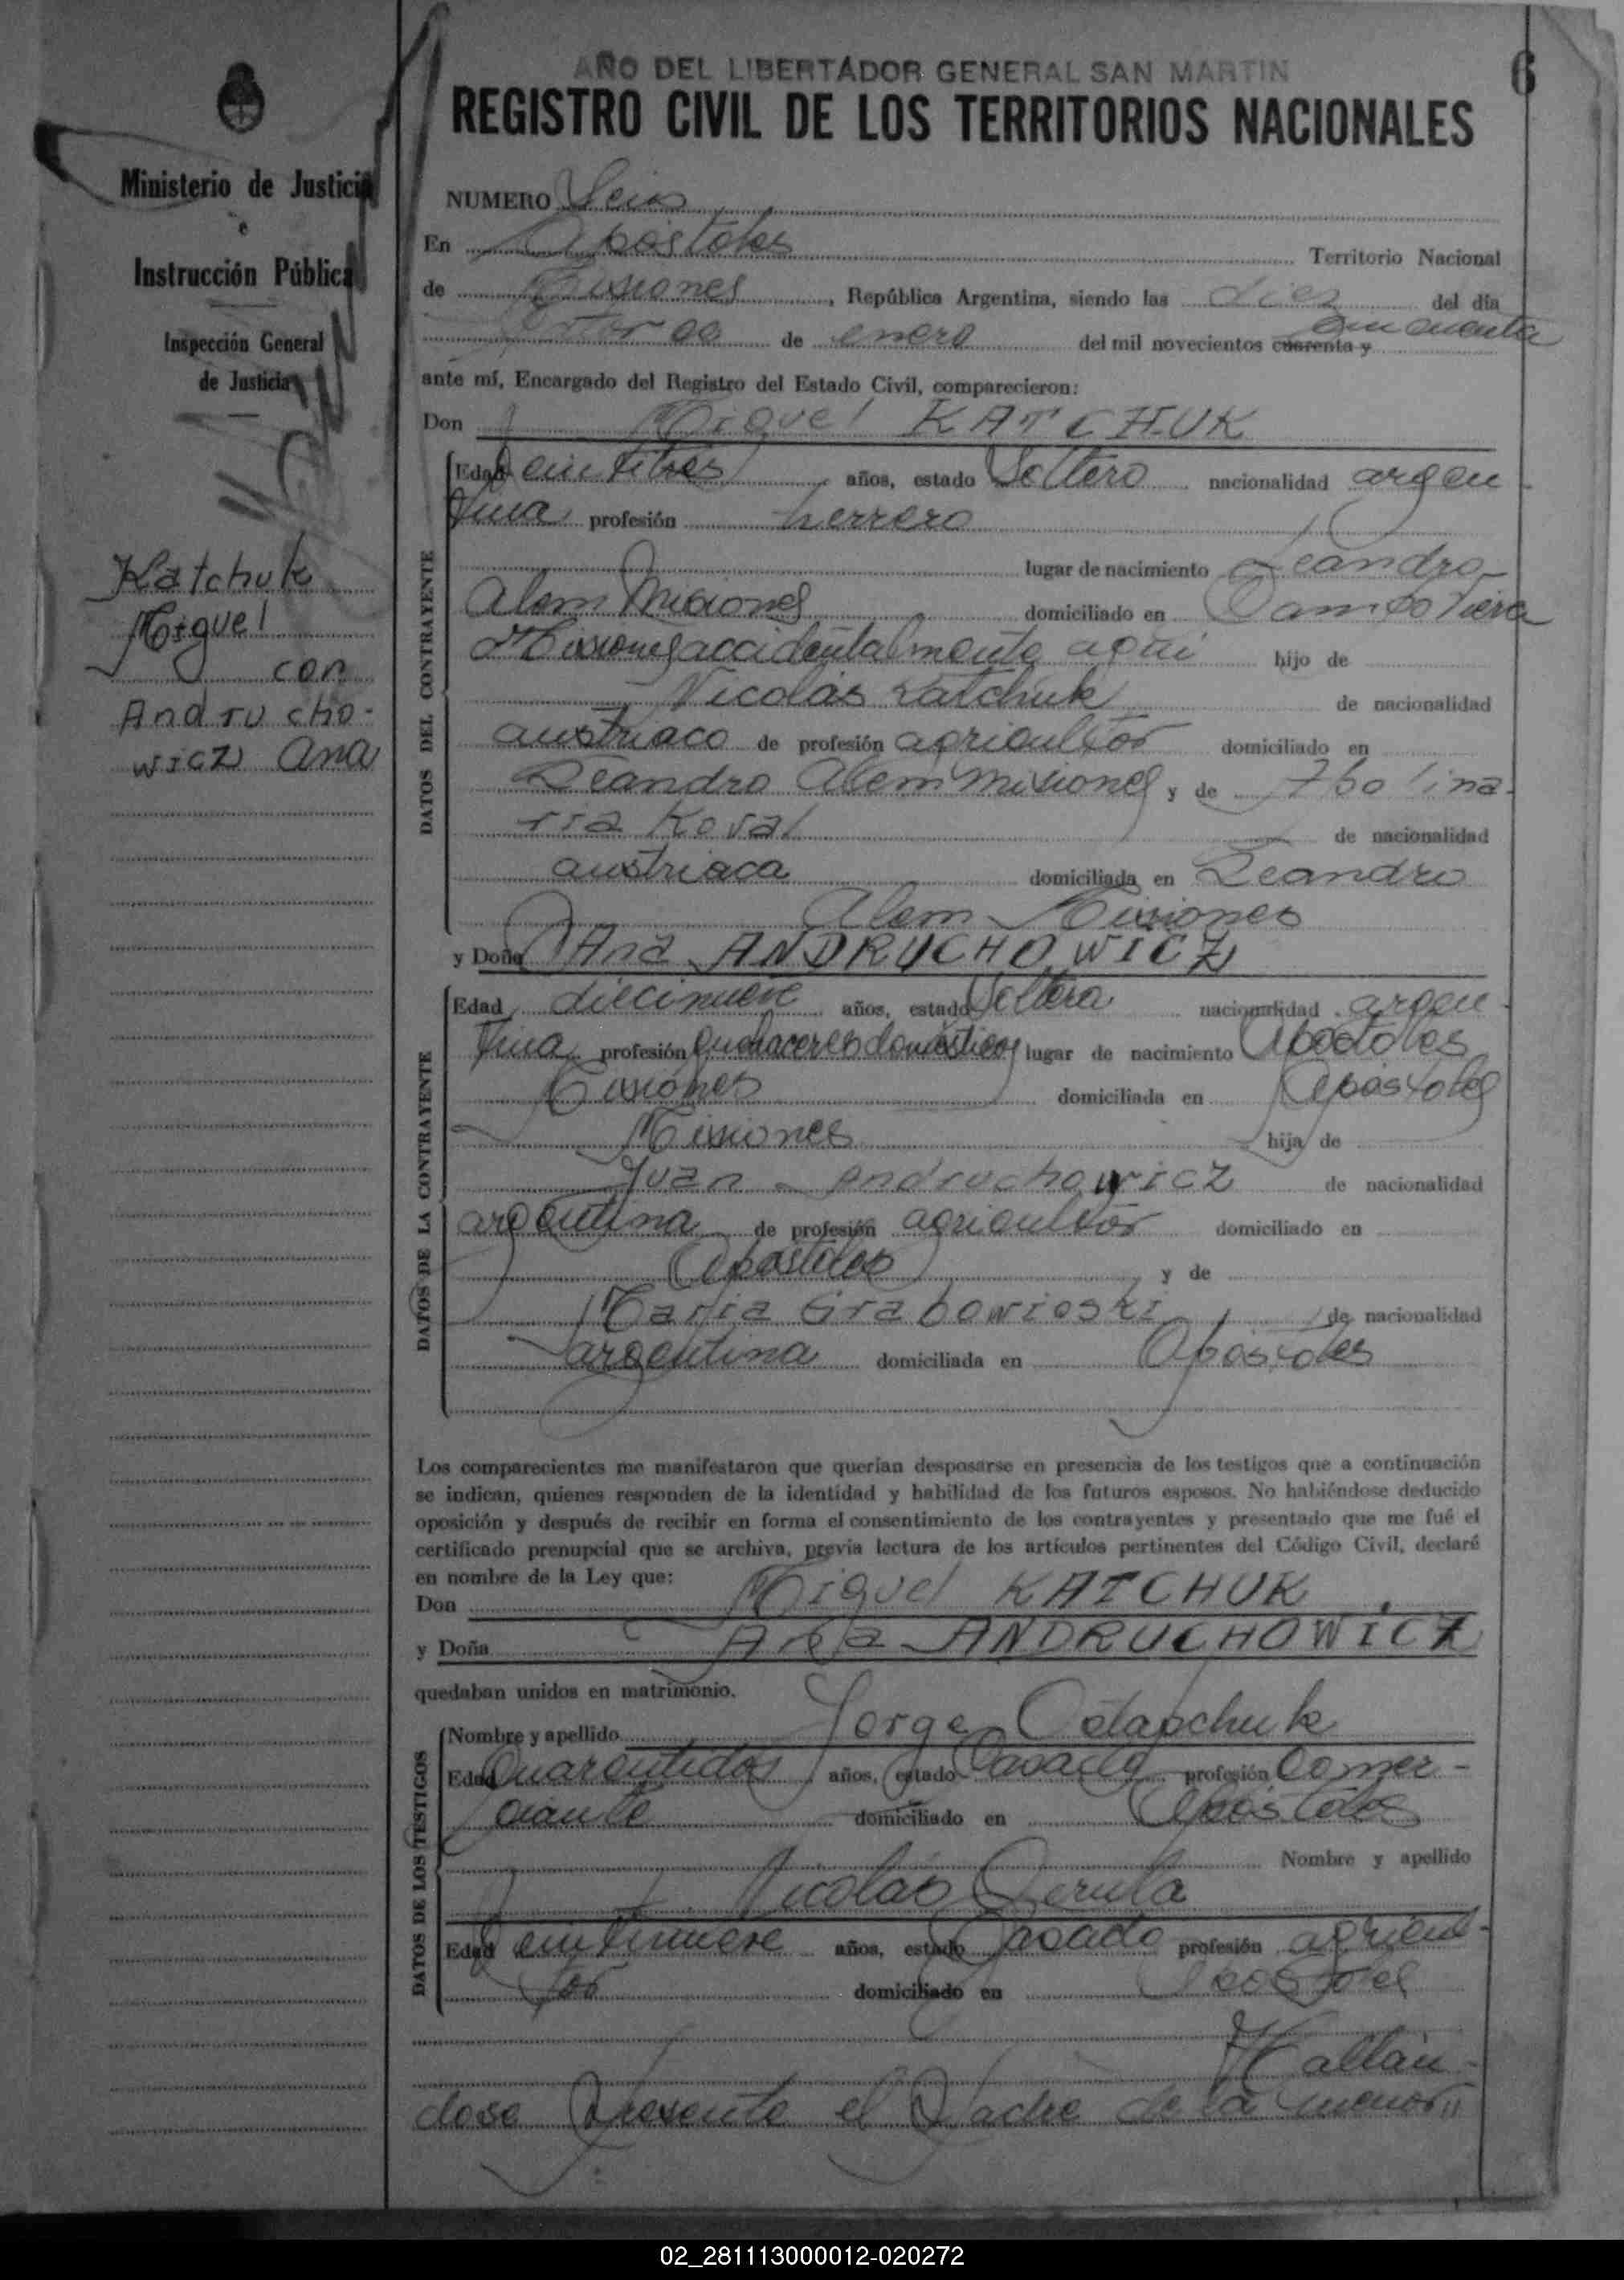 AÑO DEL LIBERTADOR GENERAL SAN MARTIN
6
REGISTRO CIVIL DE LOS TERRITORIOS NACIONALES
Ministerio de Justicia
e
Instrucción Pública
Inspección General
de Justicia
Katchuk
Miguel
con
Andrucho-
wicz Ana
NUMERO Seis
En Apóstoles Territorio Nacional
de Misiones, República Argentina, siendo las diez del día
catorce de enero del mil novecientos cuarenta y cincuenta
ante mí, Encargado del Registro del Estado Civil, comparecieron:
Don Miguel KATCHUK
DATOS DEL CONTRAYENTE
Edad veintitres años, estado Soltero nacionalidad argen-
tina profesión herrero
lugar de nacimiento Leandro
Alem Misiones domiciliado en Campo Viera
Misiones accidentalmente aquí hijo de
Nicolás Katchuk de nacionalidad
austriaco de profesión agricultor domiciliado en
Leandro Alem Misiones y de Apolina-
ria Koval de nacionalidad
austriaca domiciliada en Leandro
Alem Misiones
y Doña Ana ANDRUCHOWICZ
DATOS DE LA CONTRAYENTE
Edad diecinueve años, estado Soltera nacionalidad argen-
tina profesión quehaceres domésticos lugar de nacimiento Apóstoles
Misiones domiciliada en Apóstoles
Misiones hija de
Juan Andruchowicz de nacionalidad
argentina de profesión agricultor domiciliado en
Apóstoles y de
María Grabowieski de nacionalidad
argentina domiciliada en Apóstoles
Los comparecientes me manifestaron que querían desposarse en presencia de los testigos que a continuación
se indican, quienes responden de la identidad y habilidad de los futuros esposos. No habiéndose deducido
oposición y después de recibir en forma el consentimiento de los contrayentes y presentado que me fué el
certificado prenupcial que se archiva, previa lectura de los artículos pertinentes del Código Civil, declaré
en nombre de la Ley que:
Don Miguel KATCHUK
y Doña Ana ANDRUCHOWICZ
quedaban unidos en matrimonio.
DATOS DE LOS TESTIGOS
Nombre y apellido Jorge Ostapchuk
Edad cuarentidos años, estado Casado profesión Comer-
ciante domiciliado en Apóstoles
Nombre y apellido
Nicolás Gerula
Edad veintinueve años, estado Casado profesión agricul-
tor domiciliado en Apóstoles
Hallán-
dose Presente el Padre de la menor
02_281113000012-020272